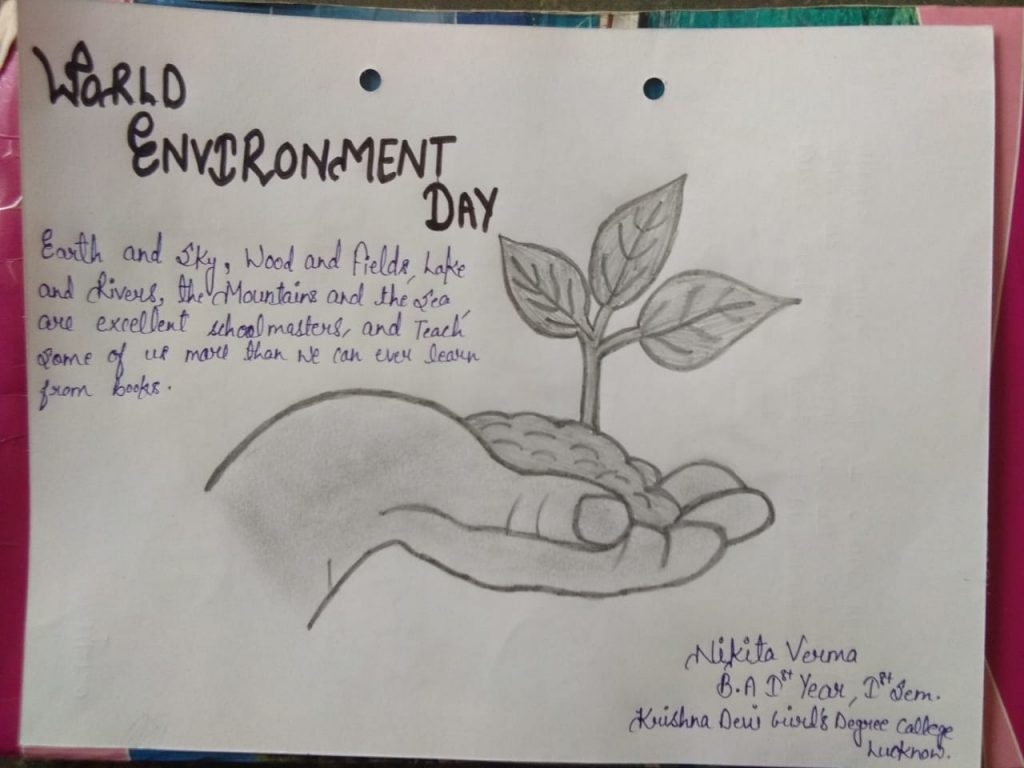 WORLD
ENVIRONMENT
DAY
Earth and Sky, Wood and fields, Lake
and Rivers, the Mountains and the Sea
are excellent schoolmasters, and Teach
Some of us more than we can ever learn
from books.
Nikita Verma
B.A Ist Year, Ist Sem.
Krishna Devi Girl's Degree College
Lucknow.